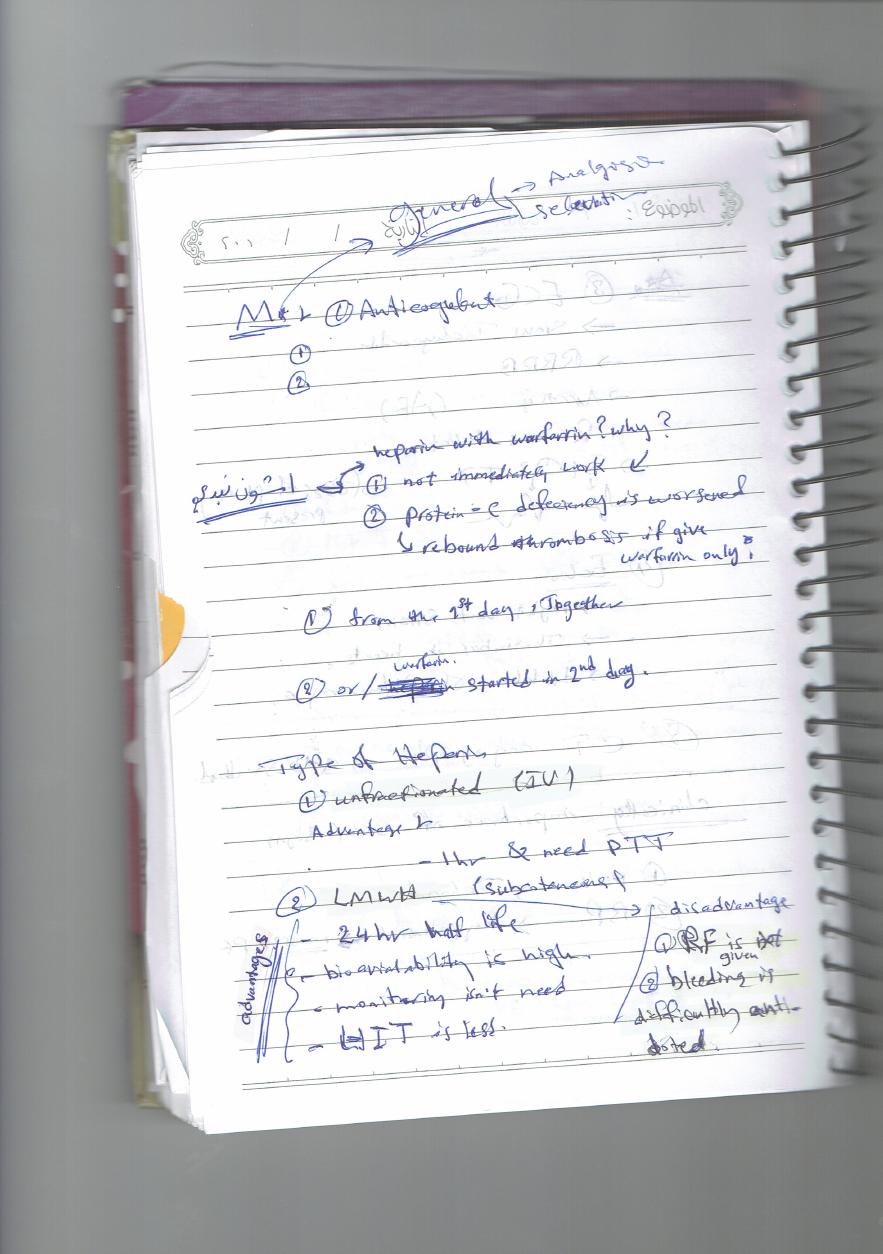 general → Analgesia
selection
الموضوع:
تاريخ / / ٢٠٠
① Anticogulant
①
②
heparin with warfarrin? why?
① not immediately work
② Protein-C defeciency is worsened
↳ rebound thrombosis if give
warfarrin only?
① from the 1st day, Together
warfarin.
② or / started in 2nd day.
Type of Heparin
① unfractionated (IV)
Advantage
- 1hr & need PTT
② LMWH (subcutaneous)
→ disadvantage
advantages
- 24hr half life
- bioavialability is high.
- monitering isn't need
- HIT is less.
① RF is not
given
② bleeding is
difficultly anti-
doted.